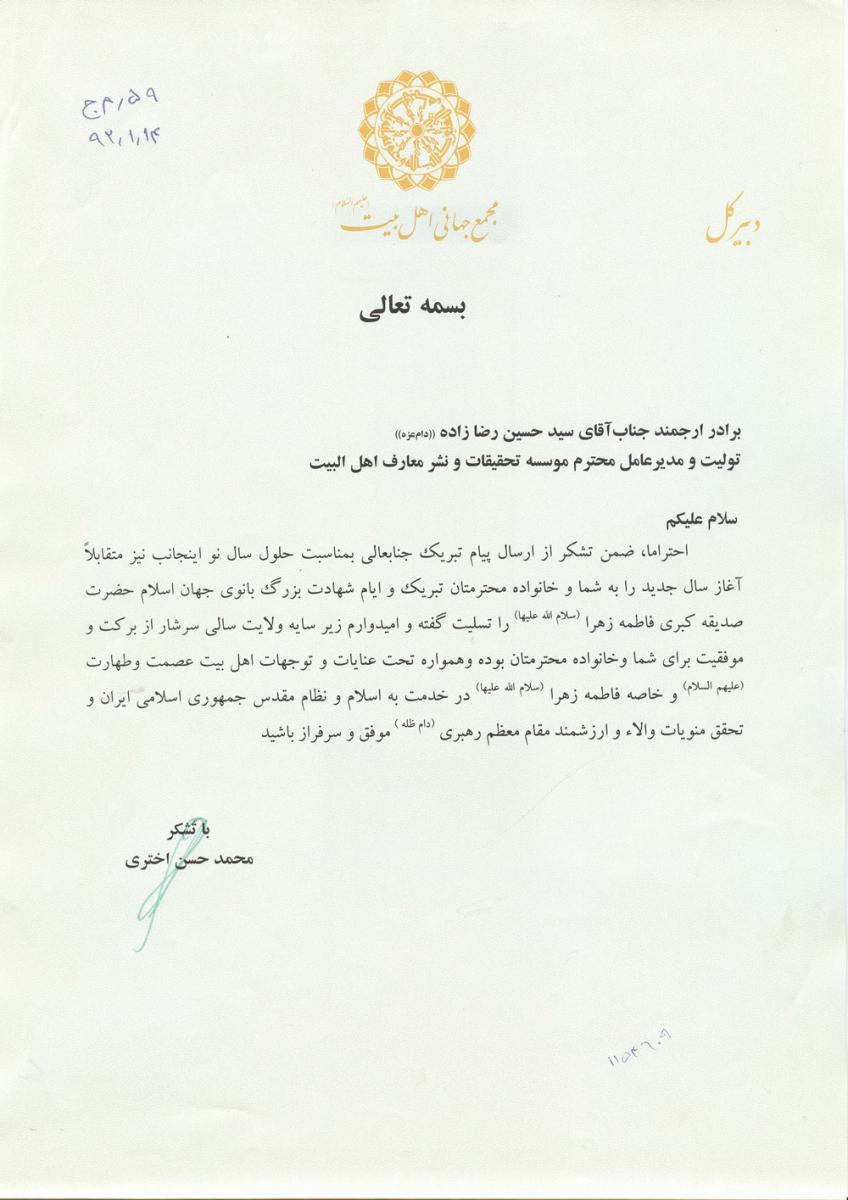 ۵۹ر م ج
۹۲٫۱٫۱۴
مجمع جهانی اهل بیت (علیهم السلام)
دبیرکل
بسمه تعالی
برادر ارجمند جناب‌آقای سید حسین رضا زاده ((دام‌عزه))
تولیت و مدیرعامل محترم موسسه تحقیقات و نشر معارف اهل البیت
سلام علیکم
احتراما، ضمن تشکر از ارسال پیام تبریک جنابعالی بمناسبت حلول سال نو اینجانب نیز متقابلاً
آغاز سال جدید را به شما و خانواده محترمتان تبریک و ایام شهادت بزرگ بانوی جهان اسلام حضرت
صدیقه کبری فاطمه زهرا (سلام الله علیها) را تسلیت گفته و امیدوارم زیر سایه ولایت سالی سرشار از برکت و
موفقیت برای شما وخانواده محترمتان بوده وهمواره تحت عنایات و توجهات اهل بیت عصمت وطهارت
(علیهم السلام) و خاصه فاطمه زهرا (سلام الله علیها) در خدمت به اسلام و نظام مقدس جمهوری اسلامی ایران و
تحقق منویات والاء و ارزشمند مقام معظم رهبری (دام ظله) موفق و سرفراز باشید
با تشکر
محمد حسن اختری